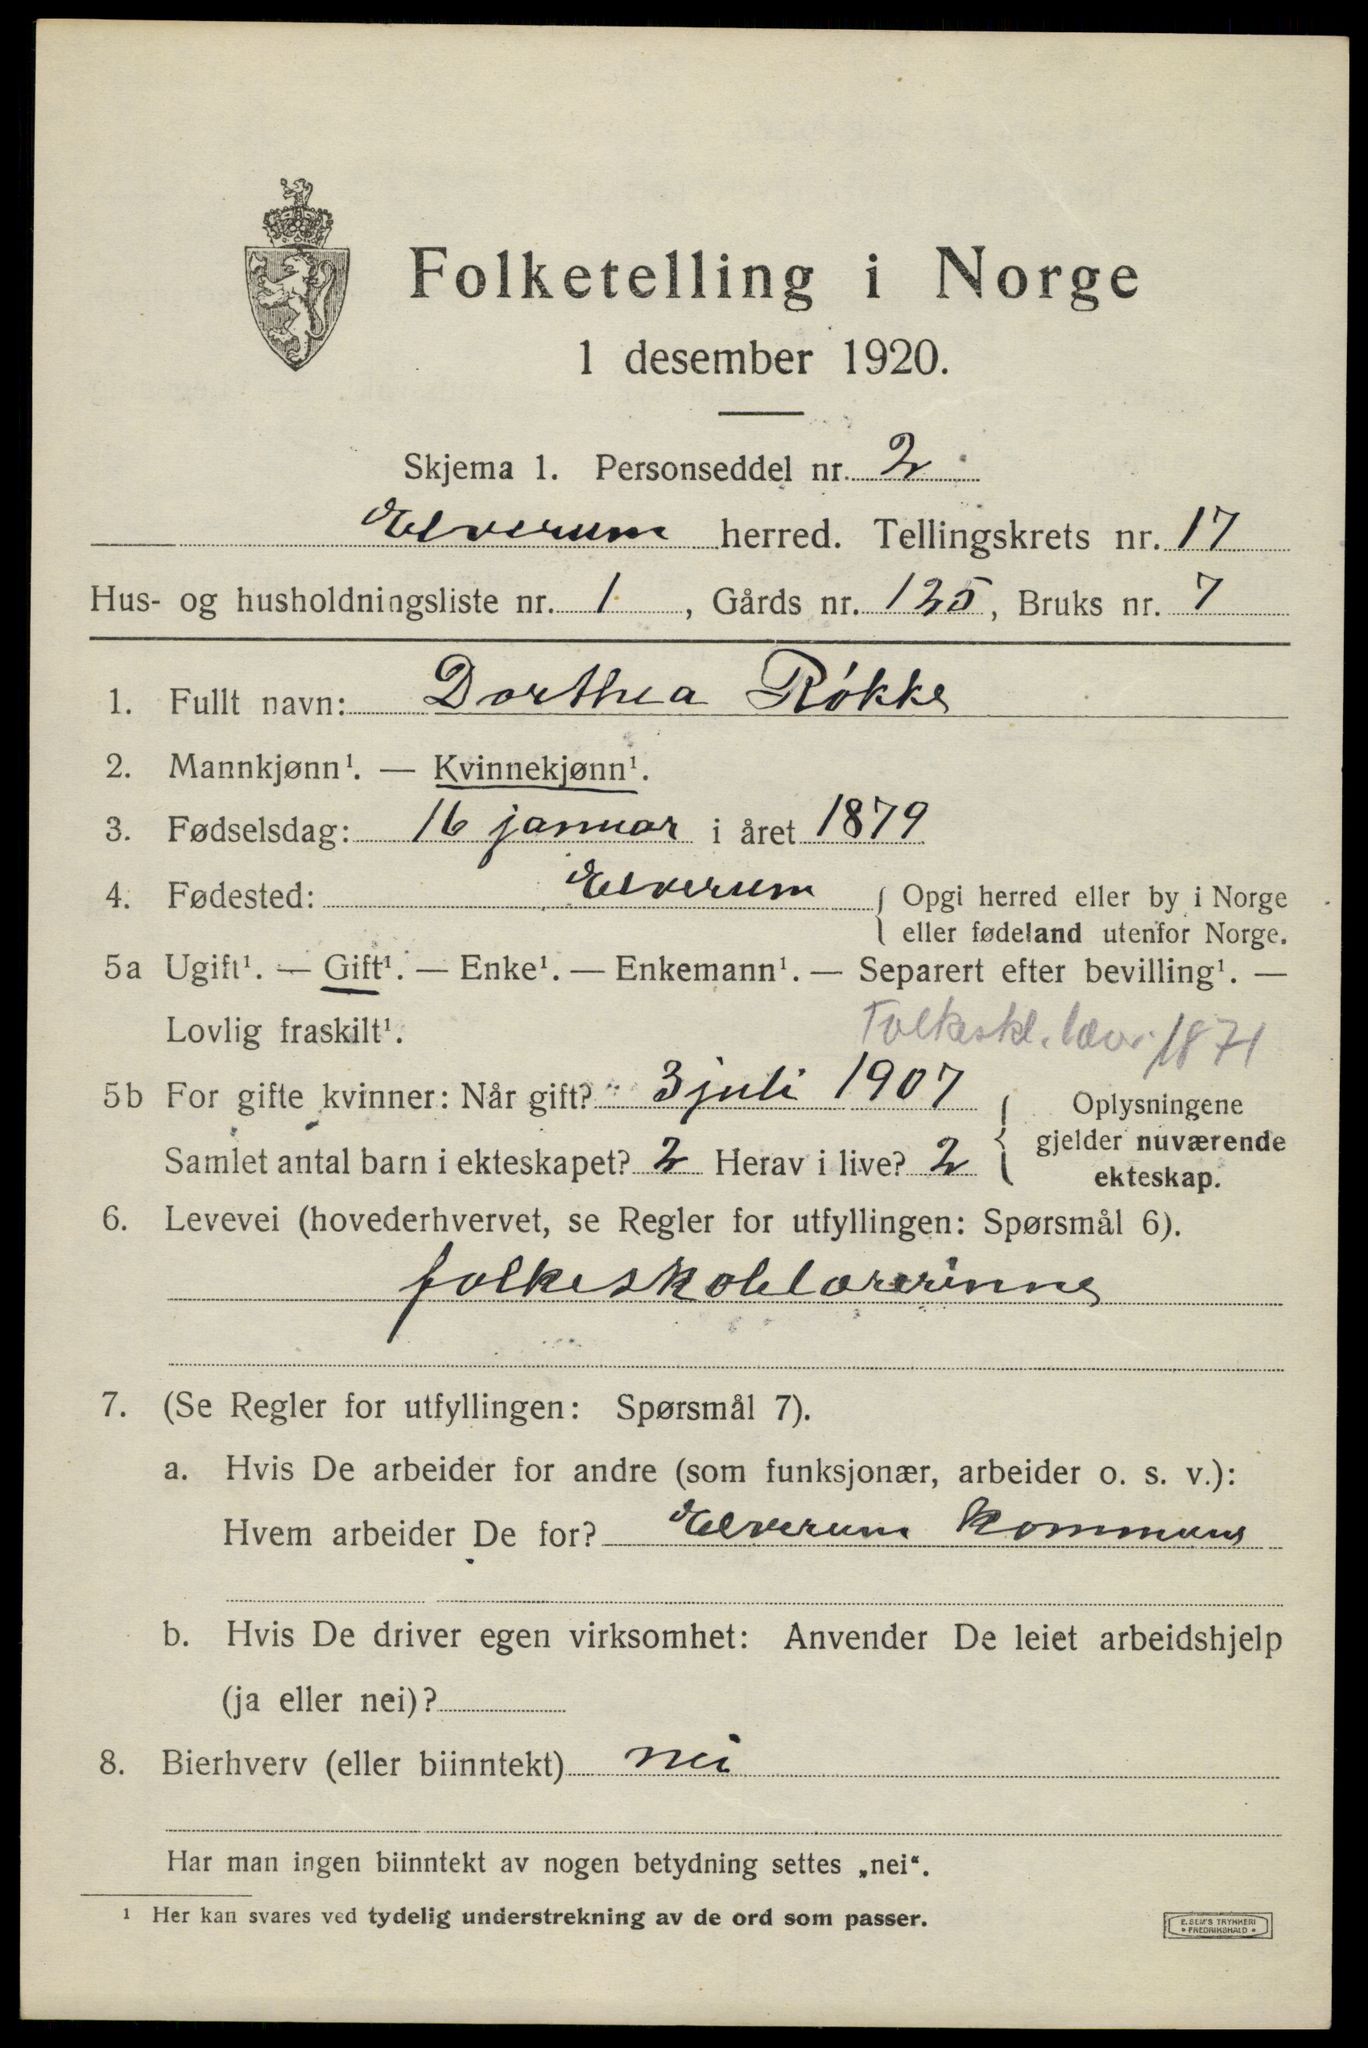 Folketelling i Norge
1 desember 1920.
Skjema 1. Personseddel nr. 2
Elverum herred. Tellingskrets nr. 17
Hus- og husholdningsliste nr. 1, Gårds nr. 125, Bruks nr. 7
1. Fullt navn: Dorthea Røkke
2. Mannkjønn¹. — Kvinnekjønn¹.
3. Fødselsdag: 16 januar i året 1879
4. Fødested: Elverum { Opgi herred eller by i Norge
eller fødeland utenfor Norge.
5a Ugift¹. — Gift¹. — Enke¹. — Enkemann¹. — Separert efter bevilling¹. —
Lovlig fraskilt¹. Folkeskl. lær. 1871
5b For gifte kvinner: Når gift? 3 juli 1907 { Oplysningene
gjelder nuværende
Samlet antal barn i ekteskapet? 2 Herav i live? 2 ekteskap.
6. Levevei (hovederhvervet, se Regler for utfyllingen: Spørsmål 6).
folkeskolelærerinne
7. (Se Regler for utfyllingen: Spørsmål 7).
a. Hvis De arbeider for andre (som funksjonær, arbeider o. s. v.):
Hvem arbeider De for? Elverum kommune
b. Hvis De driver egen virksomhet: Anvender De leiet arbeidshjelp
(ja eller nei)?
8. Bierhverv (eller biinntekt) nei
Har man ingen biinntekt av nogen betydning settes „nei“.
¹ Her kan svares ved tydelig understrekning av de ord som passer.
E. SEM'S TRYKKERI
• FREDRIKSHALD •